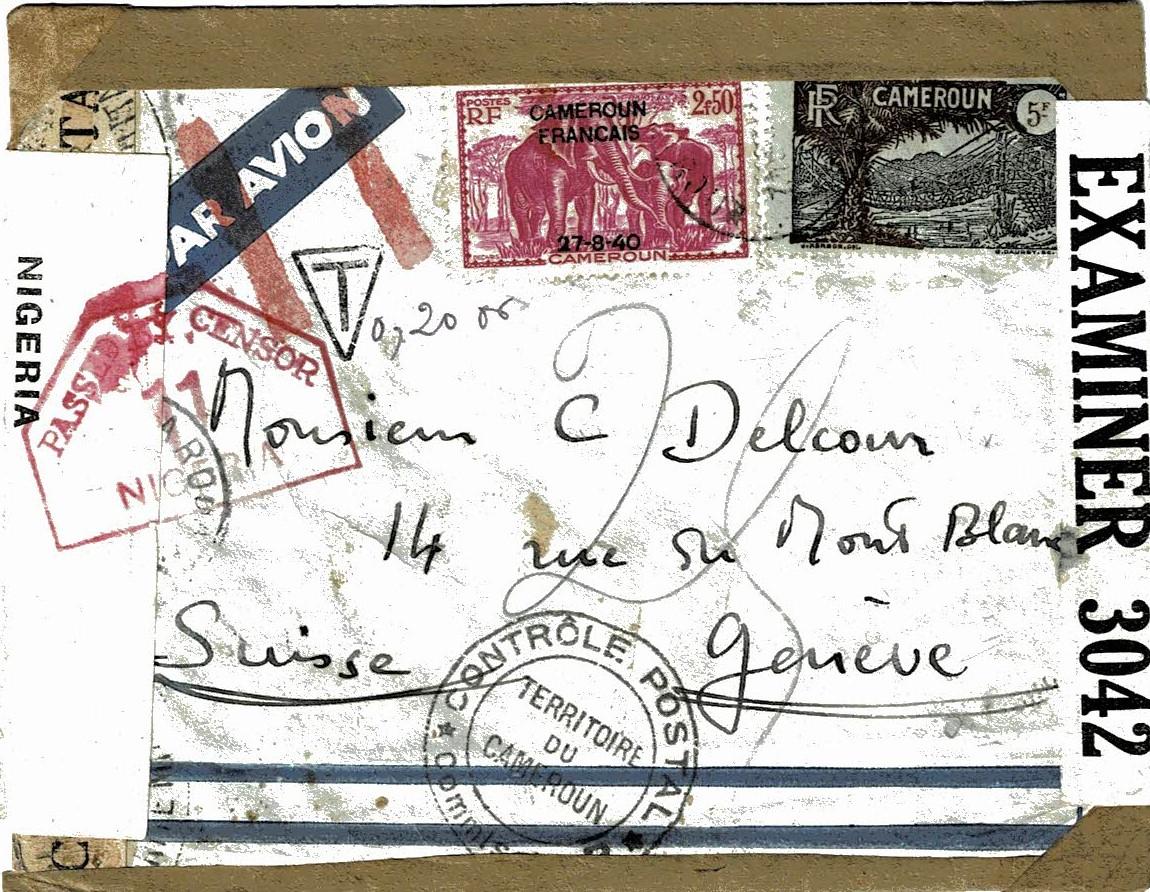 PAR AVION
POSTES
RF
CAMEROUN
FRANCAIS
2F50
27-8-40
CAMEROUN
RF
CAMEROUN
5F
EXAMINER 3042
NIGERIA
PASSED BY CENSOR
11
NIGERIA
T
0,20 or
Monsieur C Delcour
14 rue du Mont Blanc
Suisse Genève
CONTRÔLE POSTAL
TERRITOIRE
DU
CAMEROUN